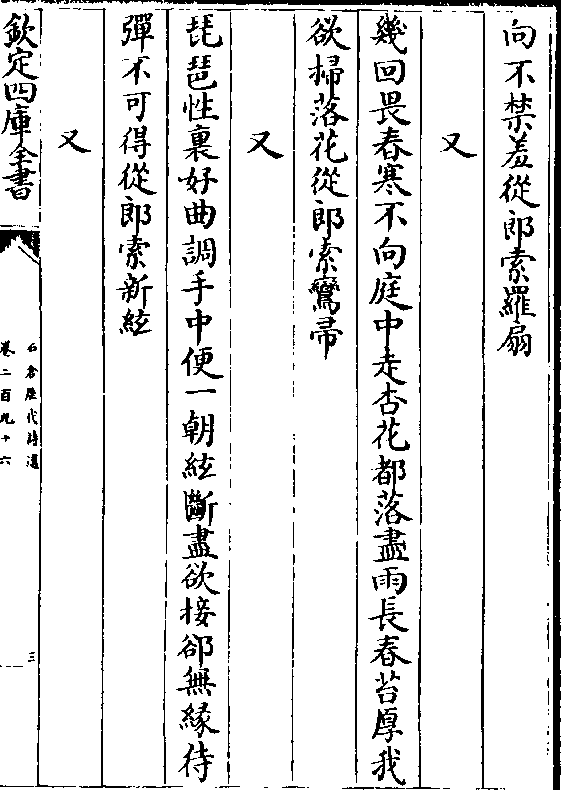 向不禁羞從郎索羅扇
又
幾回畏春寒不向庭中走杏花都落盡雨長春苔厚我
欲掃落花從郎索鸞帚
又
琵琶性裏好曲調手中便一朝絃斷盡欲接郤無緣待
彈不可得從郎索新絃
又
欽定四庫全書
石倉歷代詩選
卷二百九十六
三